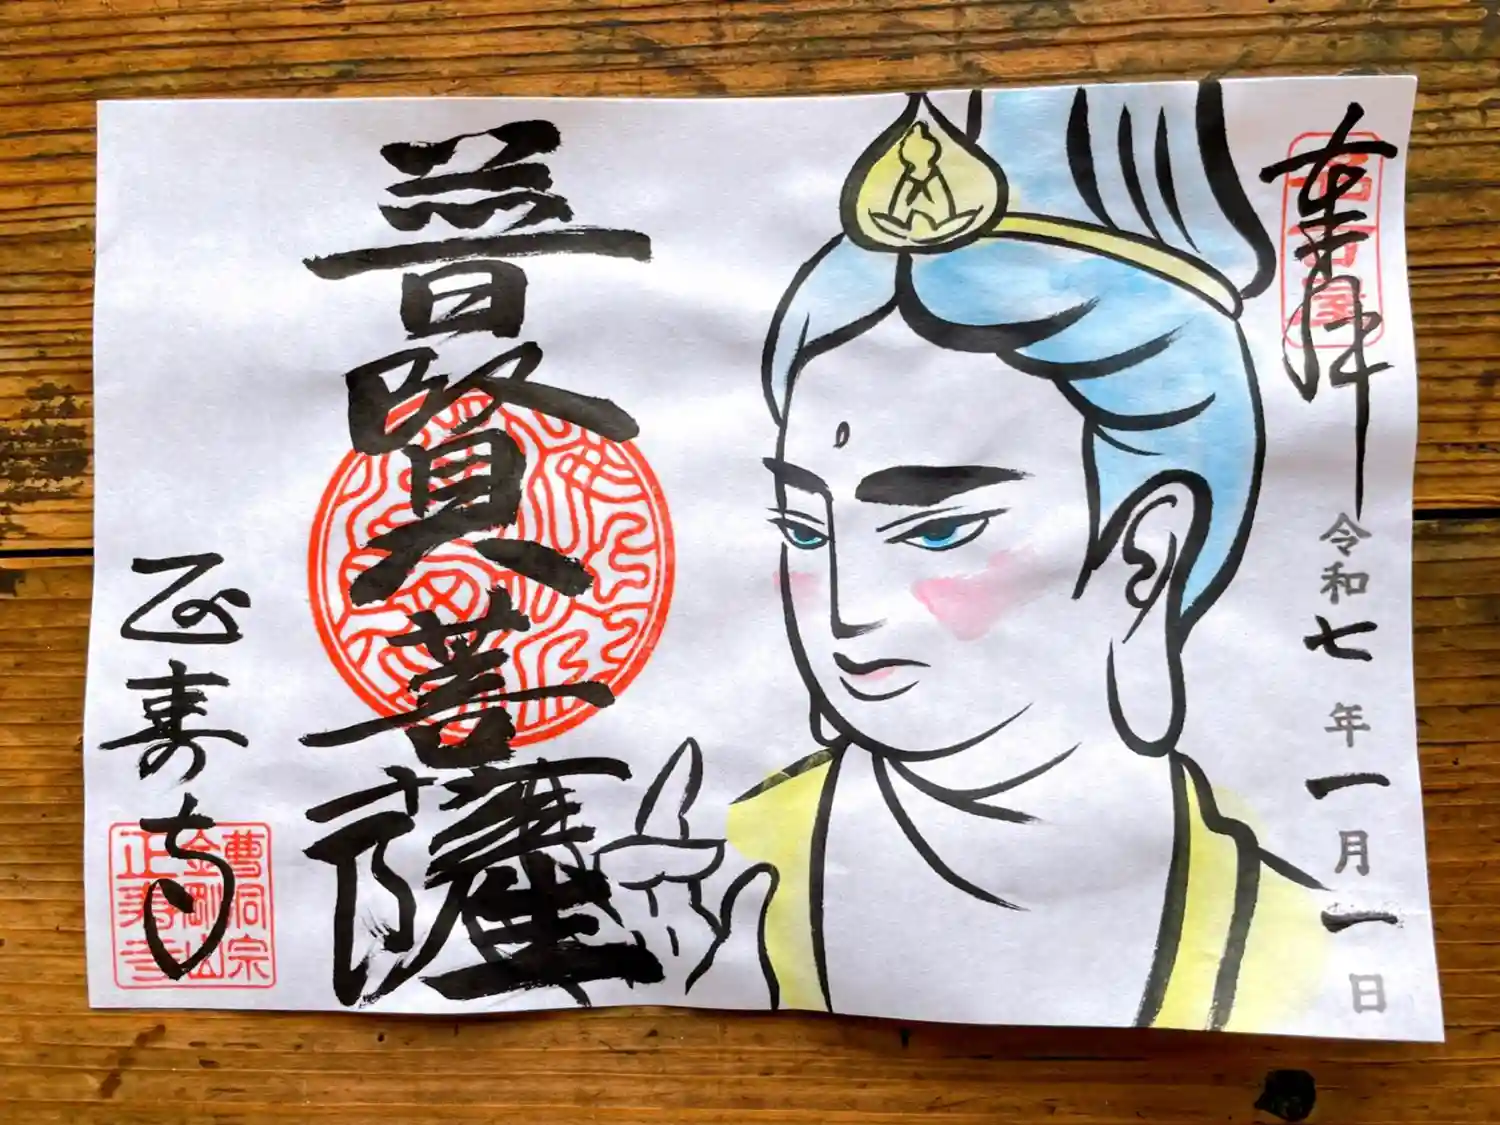 奉拝
名古屋
令和七年一月一日
普賢菩薩
正寿寺
曹洞宗
金剛山
正寿寺